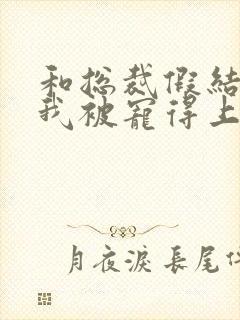 和总裁假结
我被寵得上
月夜淚 長尾